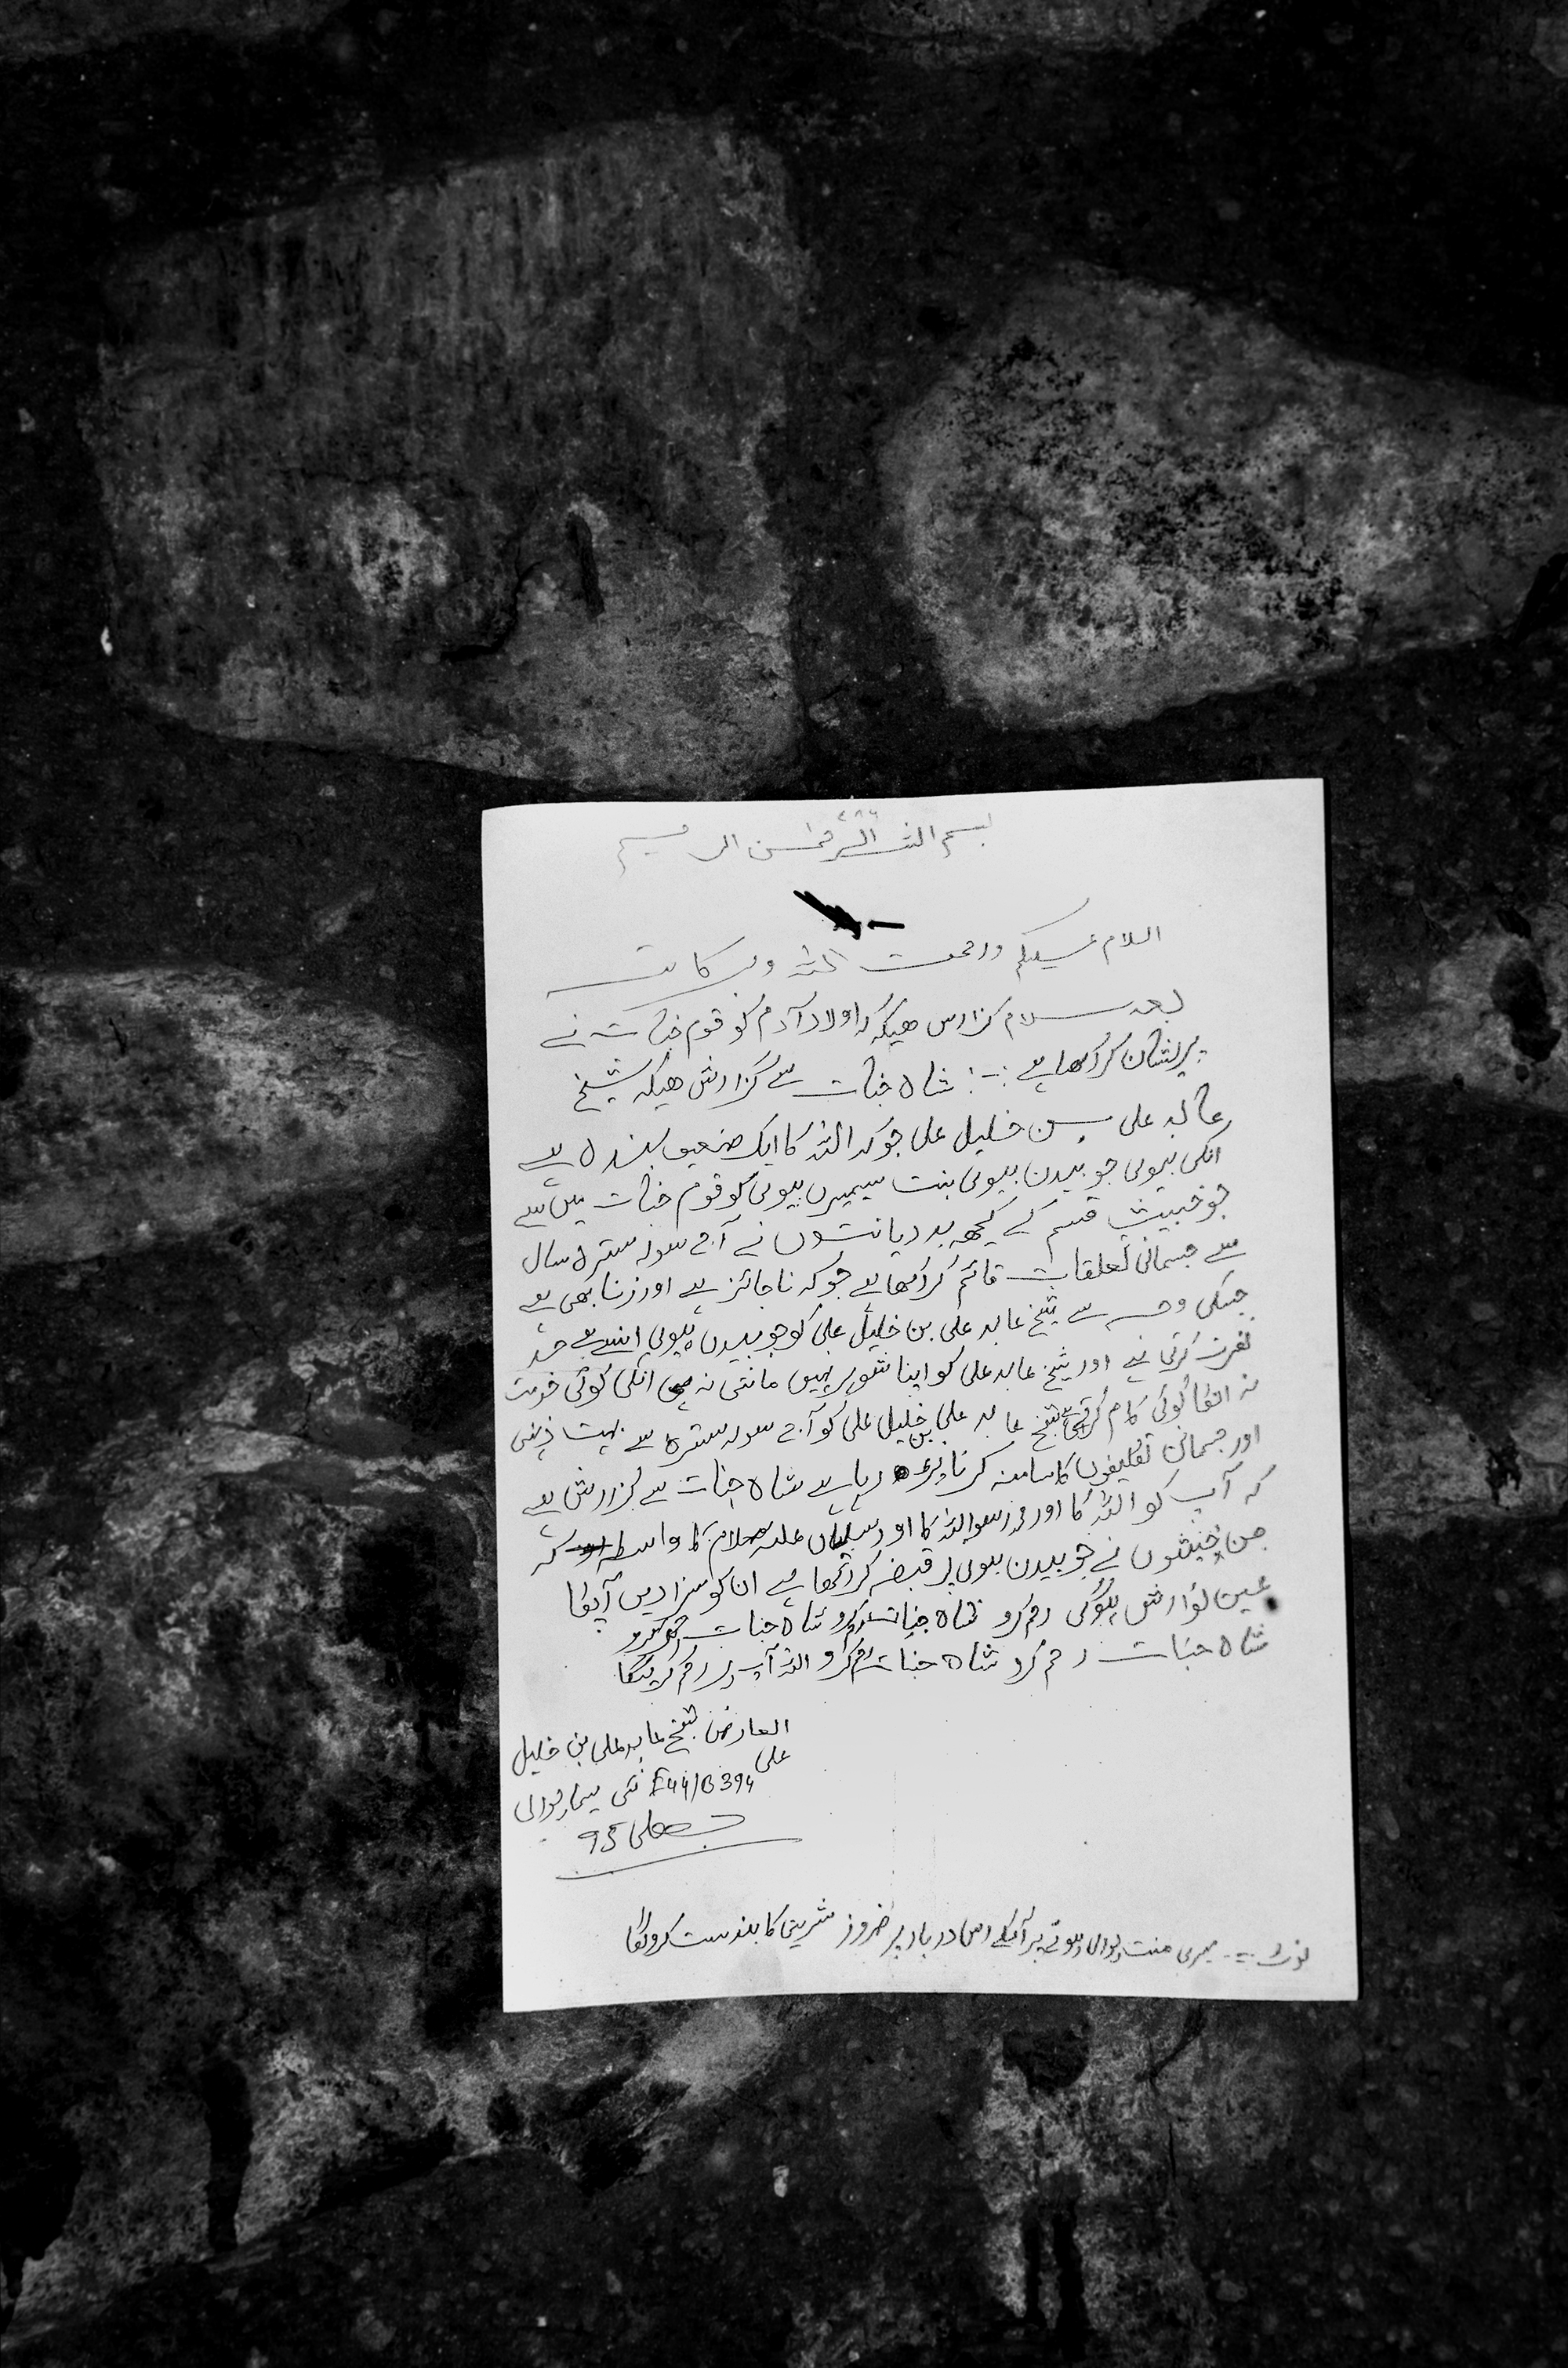 ۷۸۶
بسم اللہ الرحمٰن الرحیم
السلام علیکم ورحمت اللہ وبرکاتہ
بعد سلام گزارس ھیکہ اولاد آدم کو قوم جنات نے
پریشان کر رکھا ہے :-: شاہ جنات سے گزارش ھیکہ شیخ
عابد علی بن خلیل علی جو کہ اللہ کا ایک ضعیف بندہ ہے
انکی بیوی جو بیدن بیوی بنت بیوی کو قوم جنات میں سے
جو خبیث قسم کے کچھ بد دیانتوں نے آج سولہ سترہ سال
سے جسمانی تعلقات قائم کر رکھا ہے جو کہ ناجائز ہے اور زنا بھی ہے
جسکی وجہ سے شیخ عابد علی بن خلیل علی کو جو بیدن بیوی بے حد
نفرت کرتی ہے اور شیخ عابد علی کو اپنا شوہر نہیں مانتی نہ ہی انکی کوئی خدمت
نہ انکا کوئی کام کرتی شیخ عابد علی بن خلیل علی کو آج سولہ سترہ سے بہت ذہنی
اور جسمانی تکلیفوں کا سامنہ کرنا پڑ رہا ہے شاہ جنات سے گزارش ہے
کہ آپ کو اللہ کا اور محمد رسول اللہ کا اور سلیمان علیہ سلام کا واسطہ کہ
جن خبیثوں نے جو بیدن بیوی پر قبضہ کر رکھا ہے ان کو سزا دیں آپکا
عین نوازش ہوگی رحم کرو شاہ جنات رحم کرو شاہ جنات رحم کرو
شاہ جنات رحم کرو شاہ جنات رحم کرو اللہ آپ پر رحم کریگا
العارض شیخ عابد علی بن خلیل
علی
E44/B394 نئی سیماپوری
دھلی 95
نوٹ :-- میری منت پوری ہونے پر آپکے اس دربار پر ضرور شرینی کا بندست کرونگا